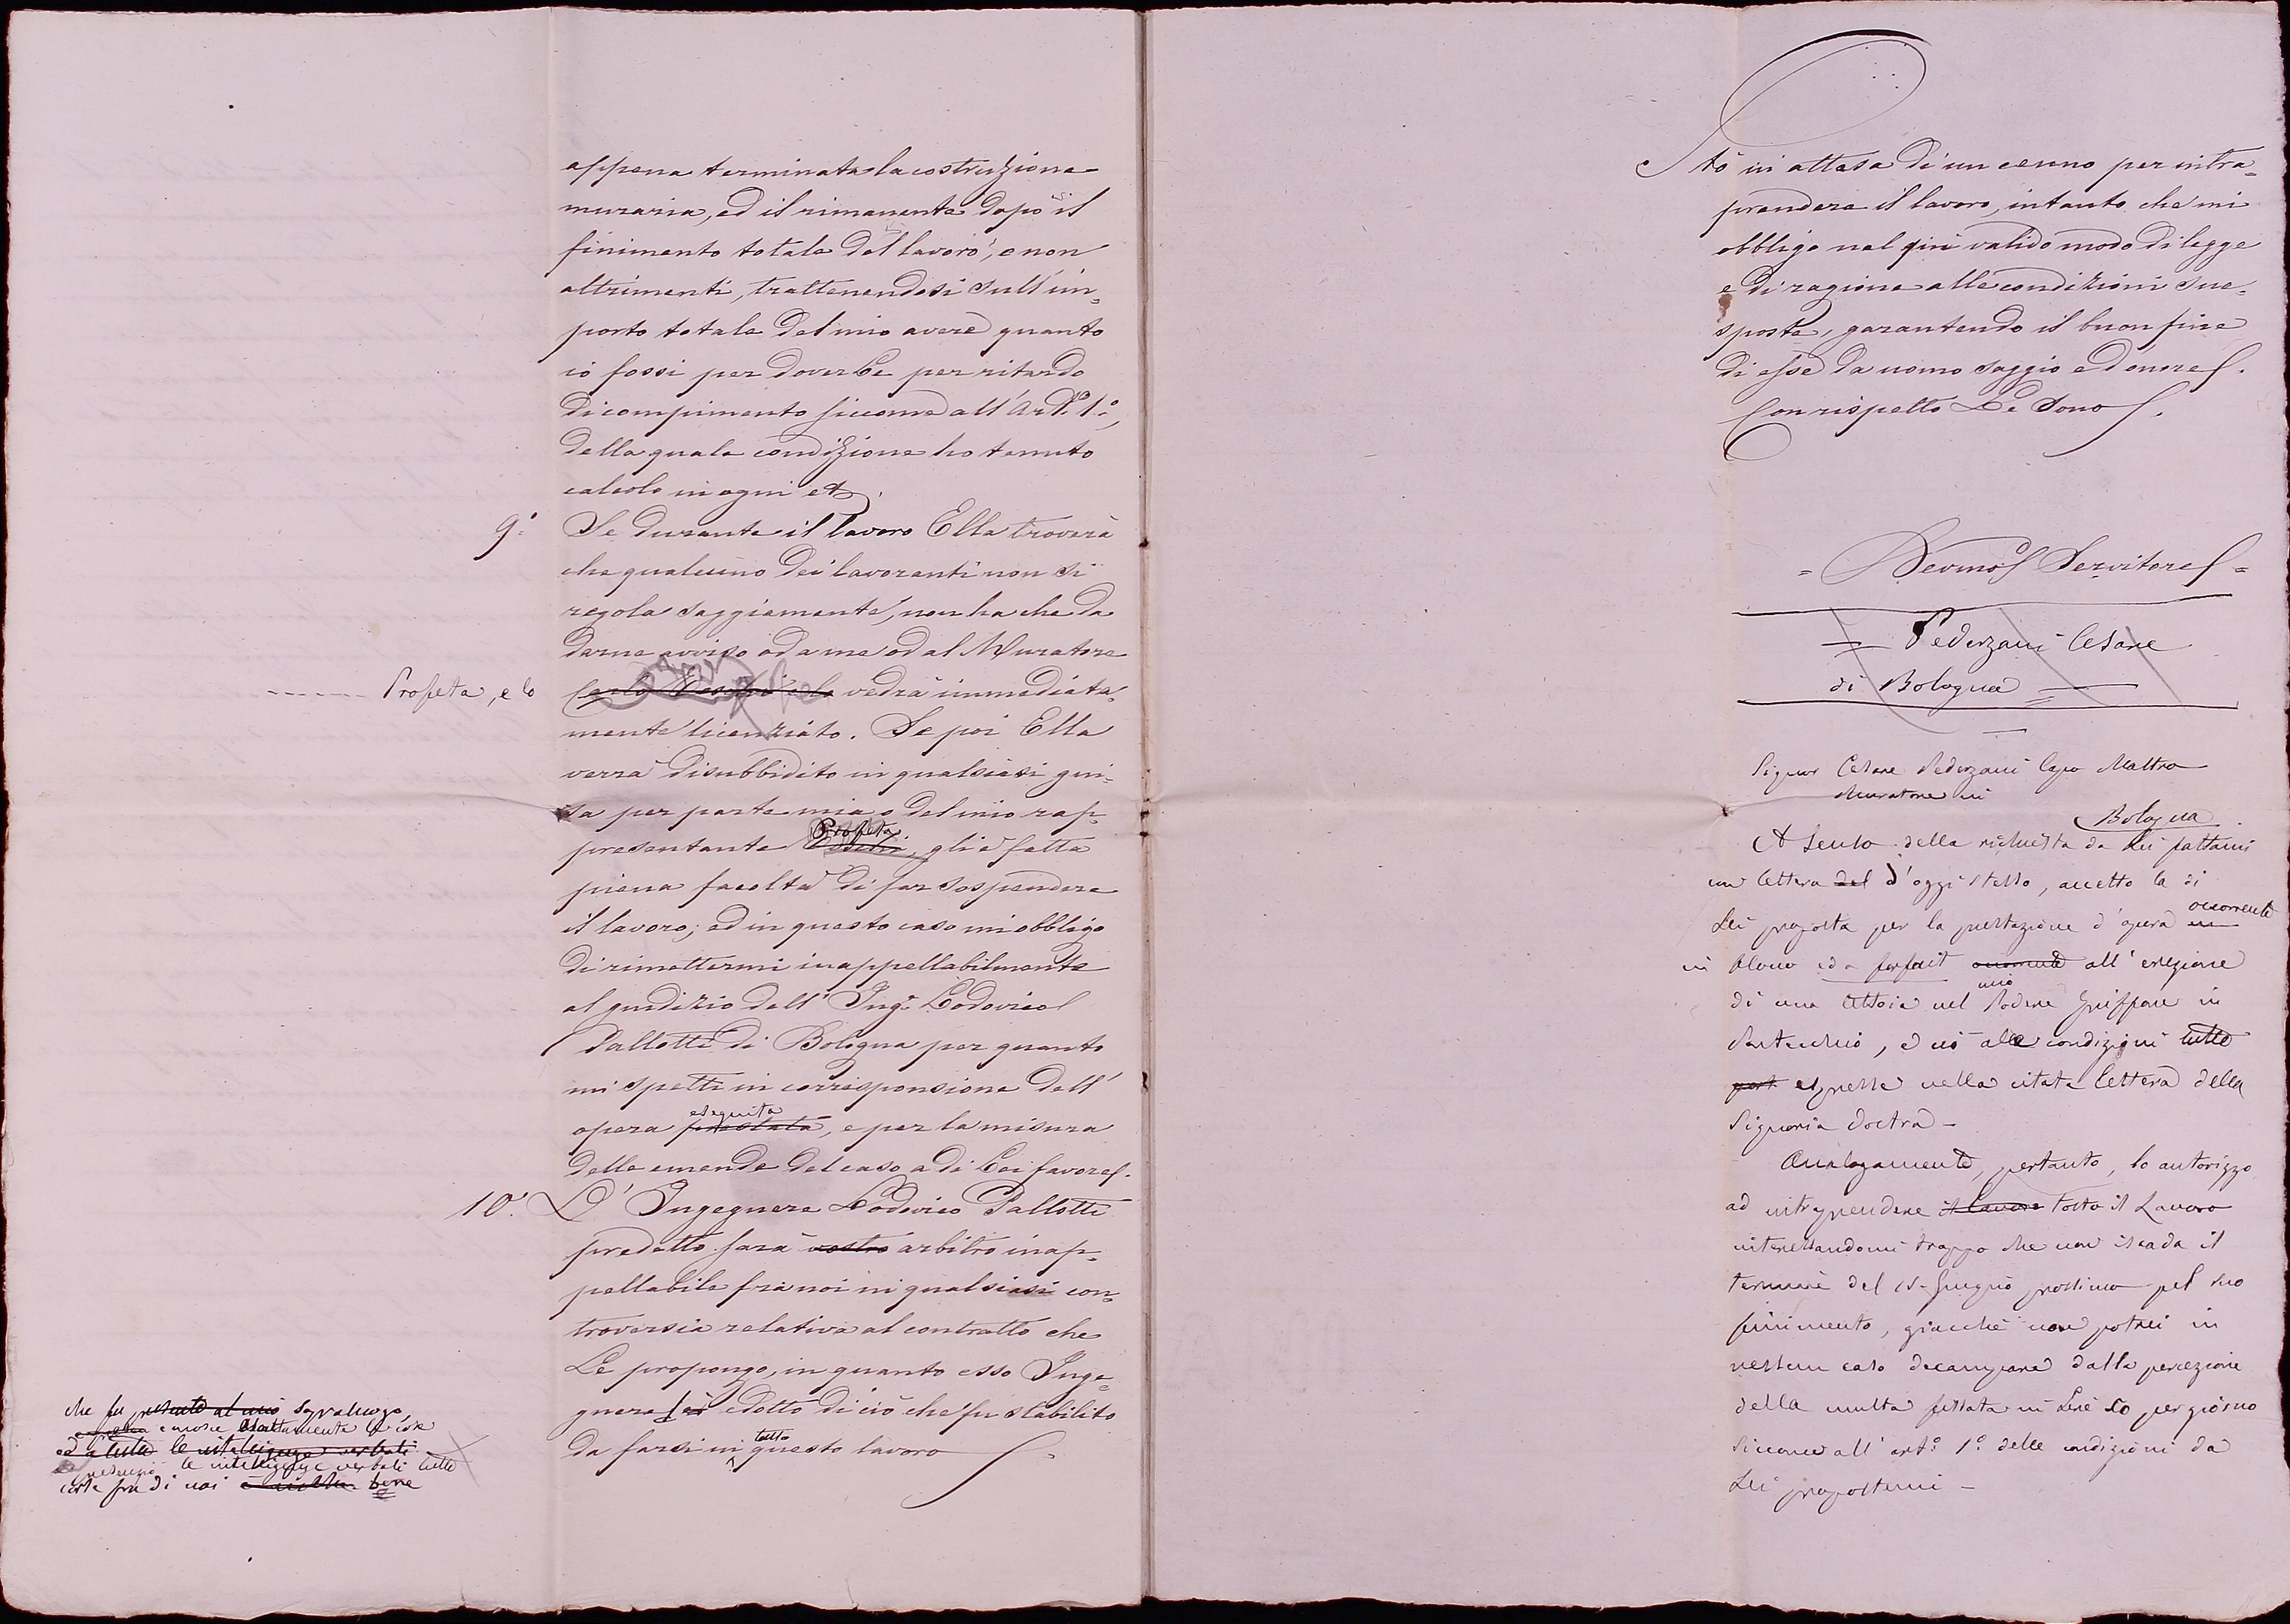 appena terminata la costruzione
muraria, ed il rimanente dopo il
finimento totale del lavoro, e non
altrimenti, trattenendosi sull'im-
porto totale del mio avere quanto
io fossi per doverLe per ritardo
di compimento siccome all'Art.o 1.o,
della quale condizione ho tenuto
calcolo in ogni
9.o Se durante il lavoro Ella troverà
che qualcuno dei lavoranti non si
regola saggiamente, non ha che da
darne avviso od a me od al Muratore
Profeta, e lo
Carlo vedrà immediata-
mente licenziato. Se poi Ella
verrà disubbidito in qualsiasi gui-
sa per parte mia o del mio rap-
Profeta
presentante, gli è fatta
piena facoltà di far sospendere
il lavoro; ed in questo caso mi obbligo
di rimettermi inappellabilmente
al giudizio dell'Ing.e Lodovico
Pallotti di Bologna per quanto
mi spetti in corrisponsione dell'
eseguita
opera prestata, e per la misura
delle emende del caso a di Lei favore.
10.o L'Ingegnere Lodovico Pallotti
predetto sarà nostro arbitro inap-
pellabile fra noi in qualsiasi con-
troversia relativa al contratto che
Le propongo, in quanto esso Inge-
gnere è edotto di ciò che fu stabilito
tutto
da farsi in questo lavoro
che fu presente al mio sopraluogo,
e conosce esattamente le cose
ed a tutte le intelligenze verbali
le intelligenze verbali tutte
corse fra di noi bene
Stò in attesa di un cenno per intra-
prendere il lavoro, intanto che mi
obbligo nel più valido modo di legge
e di ragione alle condizioni sue-
sposte, garantendo il buon fine
di esse da uomo saggio e d'onore.
Con rispetto Le sono
= Devmo Servitore =
= Pederzani Cesare
di Bologna =
Signor Cesare Pederzani Capo Mastro
Muratore in
Bologna.
A senso della richiesta da Lei fattami
con lettera del d'oggi stesso, accetto la di
occorrente
Lei proposta per la prestazione d'opera in
in blocco ed a forfait occorrente all'erezione
mio
di una tettoia nel Podere Griffone in
Pontecchio, e ciò alle condizioni tutte
port espresse nella citata lettera della
Signoria Vostra -
Analogamente, pertanto, lo autorizzo
ad intraprendere il lavoro tosto il Lavoro
interessandomi troppo che non iscada il
termine del 15 Giugno prossimo pel suo
finimento, giacchè non potrei in
nessun caso decampare dalla percezione
della multa fissata in Lire 50 per giorno
siccome all'art.o 1.o delle condizioni da
Lei propostemi -